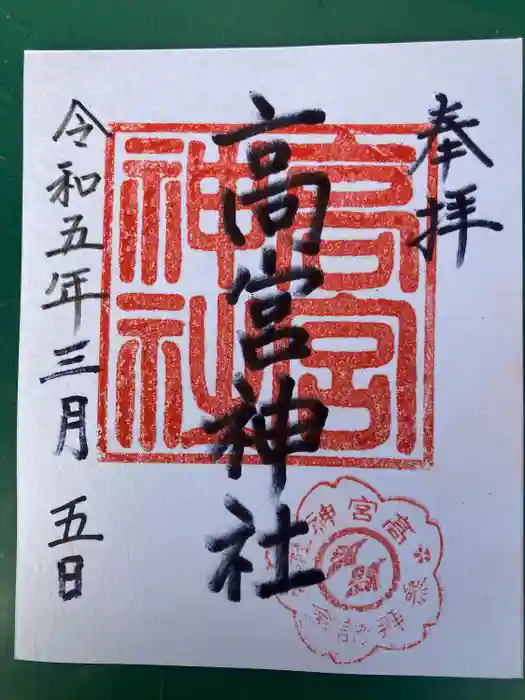 奉拝
高宮神社
令和五年三月五日
高宮神社
高宮神社
参拝記念